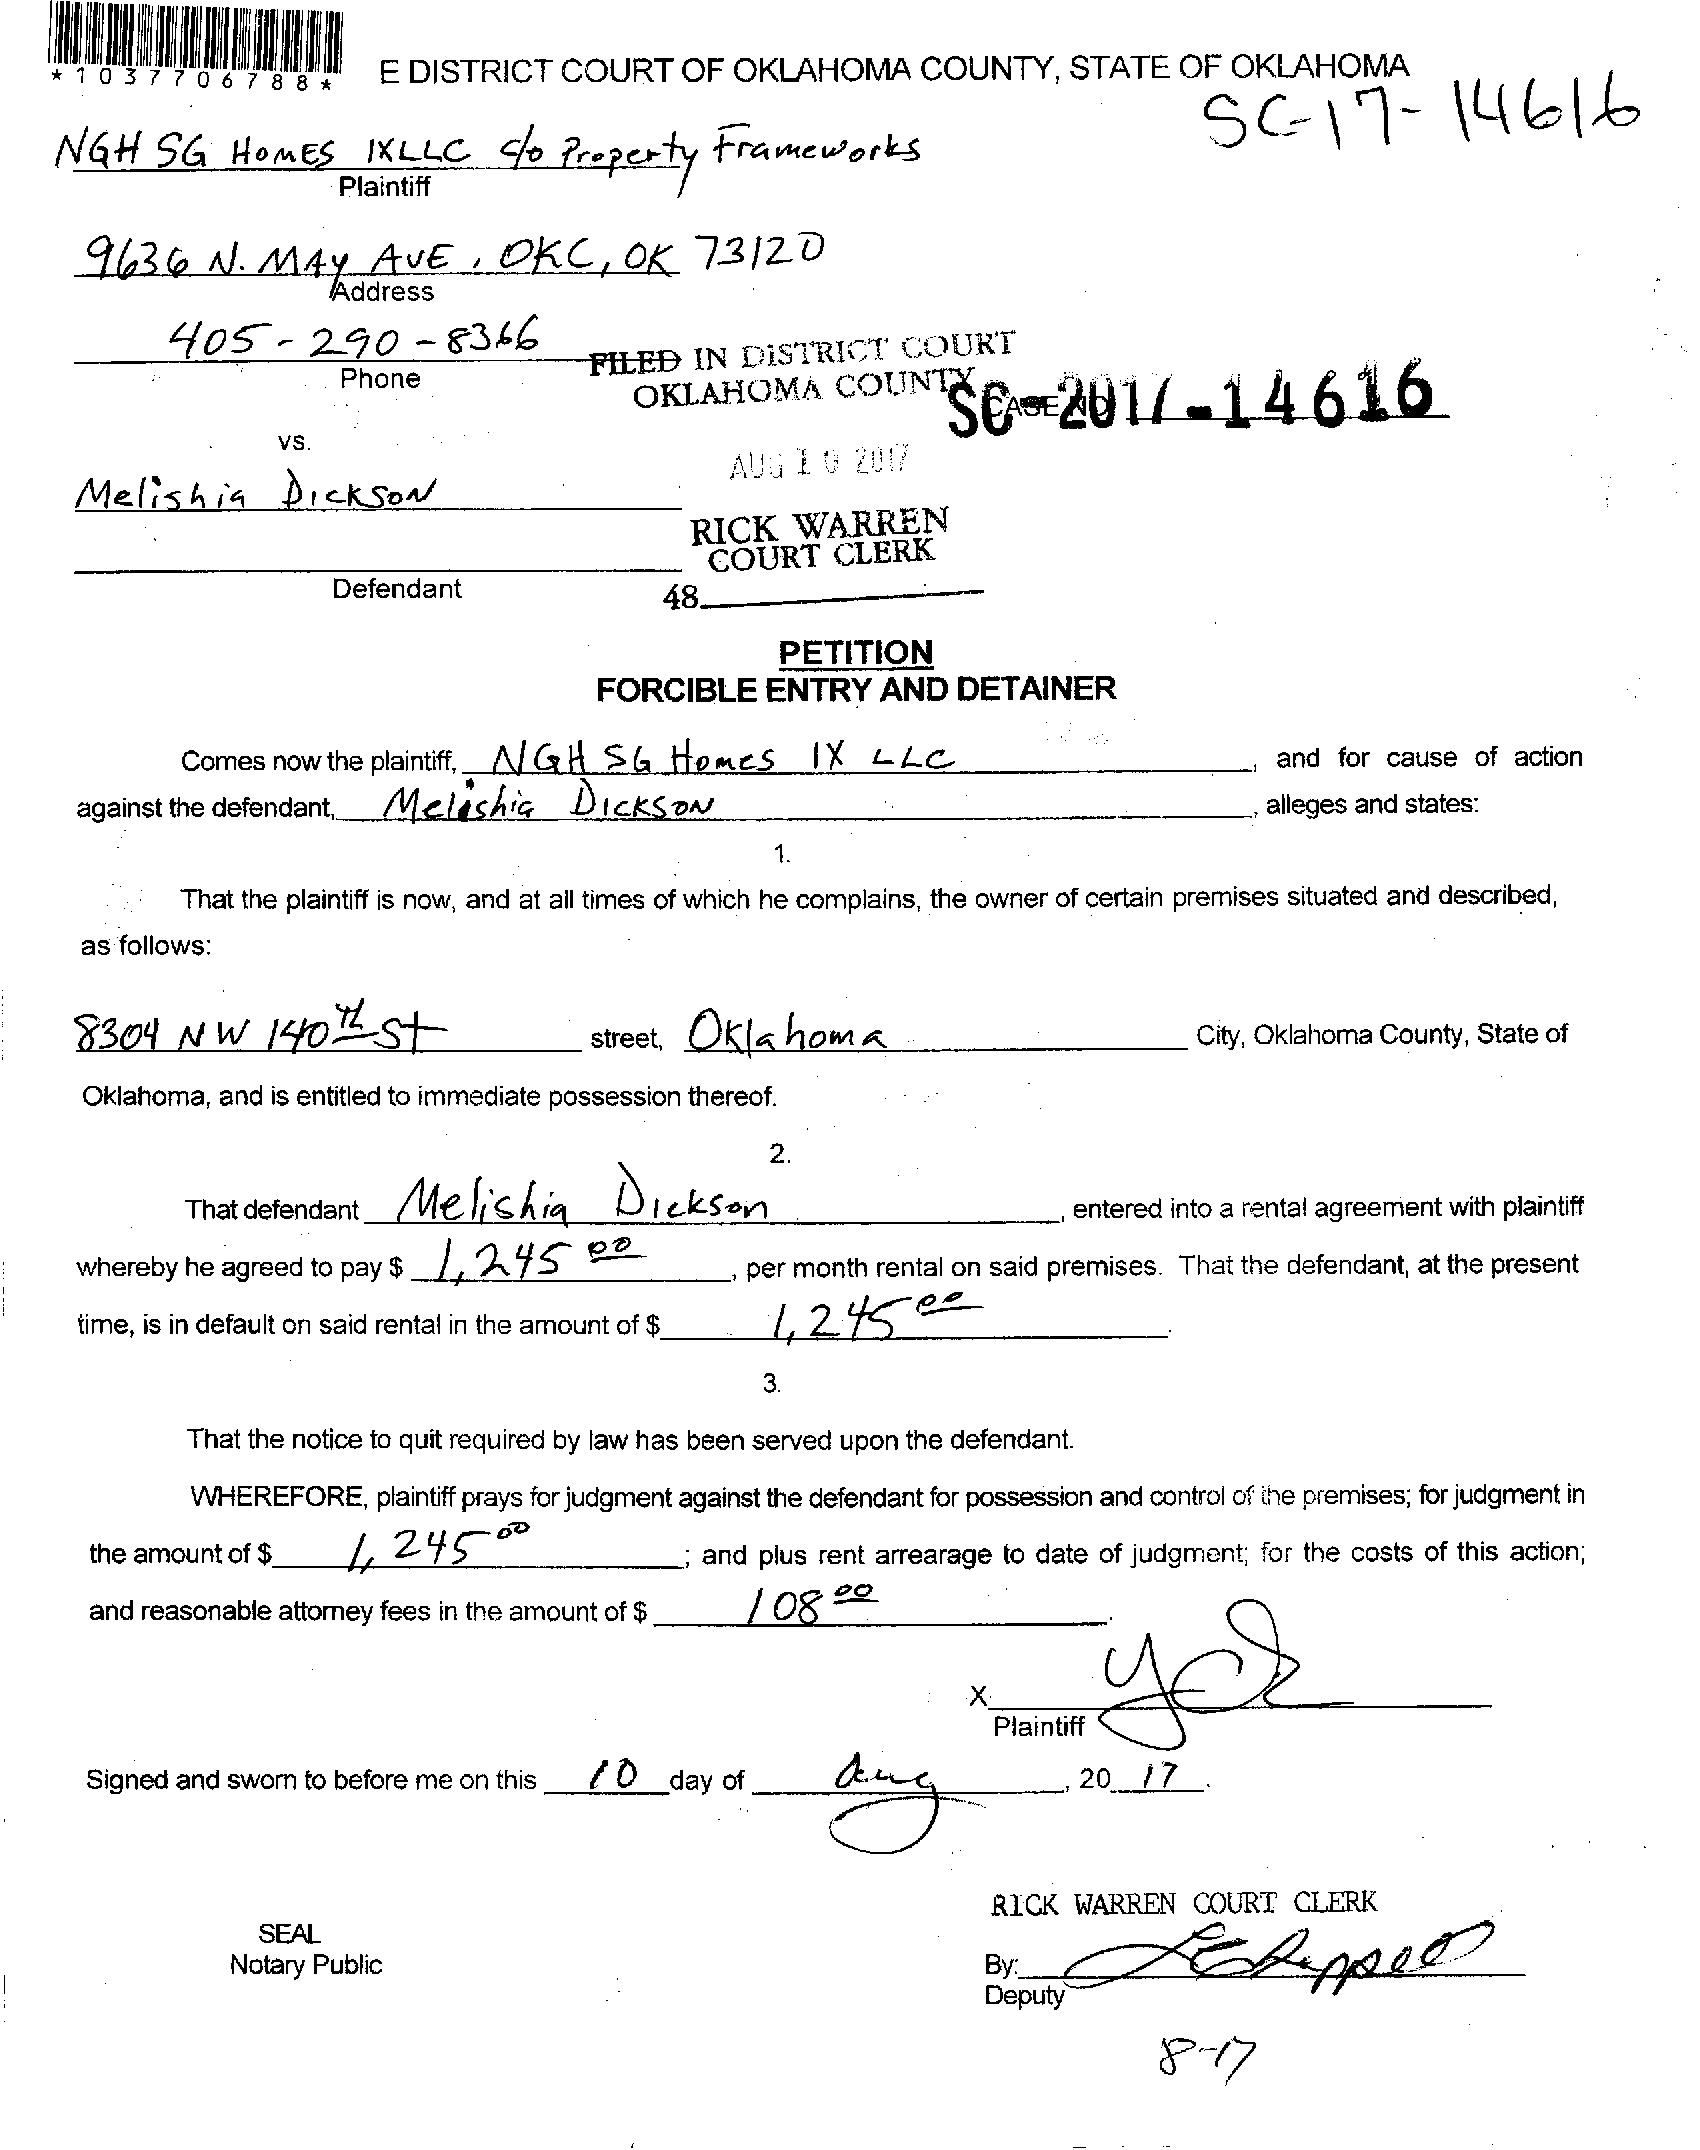 *1037706788*
E DISTRICT COURT OF OKLAHOMA COUNTY, STATE OF OKLAHOMA
SC-17-14616
NGH SG HOMES IX LLC c/o Property Frameworks
Plaintiff
9636 N. MAY AVE, OKC, OK 73120
Address
405-290-8366
Phone
FILED IN DISTRICT COURT
OKLAHOMA COUNTY
SC-2017-14616
vs.
AUG 10 2017
Melishia Dickson
RICK WARREN
COURT CLERK
Defendant
48
PETITION
FORCIBLE ENTRY AND DETAINER
Comes now the plaintiff, NGH SG Homes IX LLC, and for cause of action
against the defendant, Melishia Dickson, alleges and states:
1.
That the plaintiff is now, and at all times of which he complains, the owner of certain premises situated and described,
as follows:
8304 NW 140th St street, Oklahoma City, Oklahoma County, State of
Oklahoma, and is entitled to immediate possession thereof.
2.
That defendant Melishia Dickson, entered into a rental agreement with plaintiff
whereby he agreed to pay $ 1,245 00, per month rental on said premises. That the defendant, at the present
time, is in default on said rental in the amount of $ 1,245 00.
3.
That the notice to quit required by law has been served upon the defendant.
WHEREFORE, plaintiff prays for judgment against the defendant for possession and control of the premises; for judgment in
the amount of $ 1,245 00; and plus rent arrearage to date of judgment; for the costs of this action;
and reasonable attorney fees in the amount of $ 108 00.
X
Plaintiff
Signed and sworn to before me on this 10 day of Aug, 20 17.
RICK WARREN COURT CLERK
SEAL
Notary Public
By:
Deputy
8-17